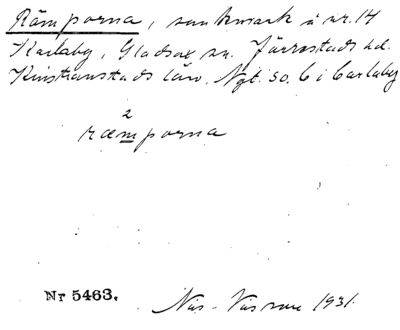 Rämporna, sankmark å nr. 14
Karlaby, Gladsax sn. Järrestads hd.
Kristianstads län. Ngt. so. 6 i Carlaby
2
ræmporna
Nr 5463.
Nils-Våsrun 1931.